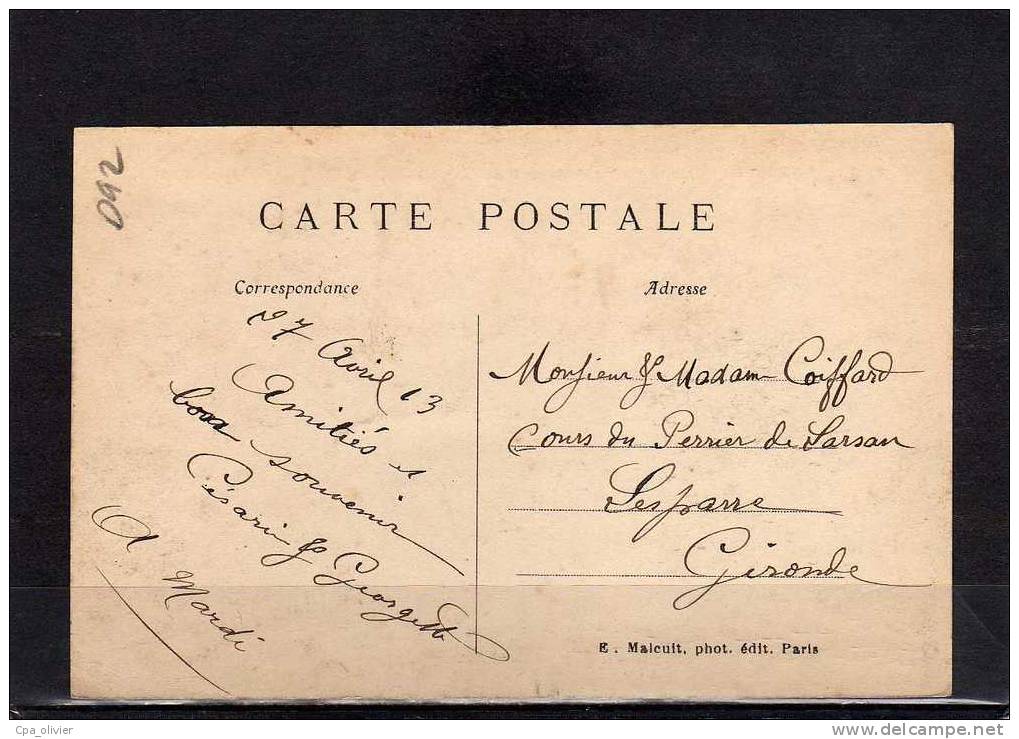 092
CARTE POSTALE
Correspondance
27 Avril 13
Amitiés et
bon souvenir
Césarin & Georgette
A Mardi
Adresse
Monsieur & Madame Coiffard
Cours du Perrier de Larsan
Lesparre
Gironde
E. Malcuit, phot. édit. Paris
Cpa_olivier
www.delcampe.net